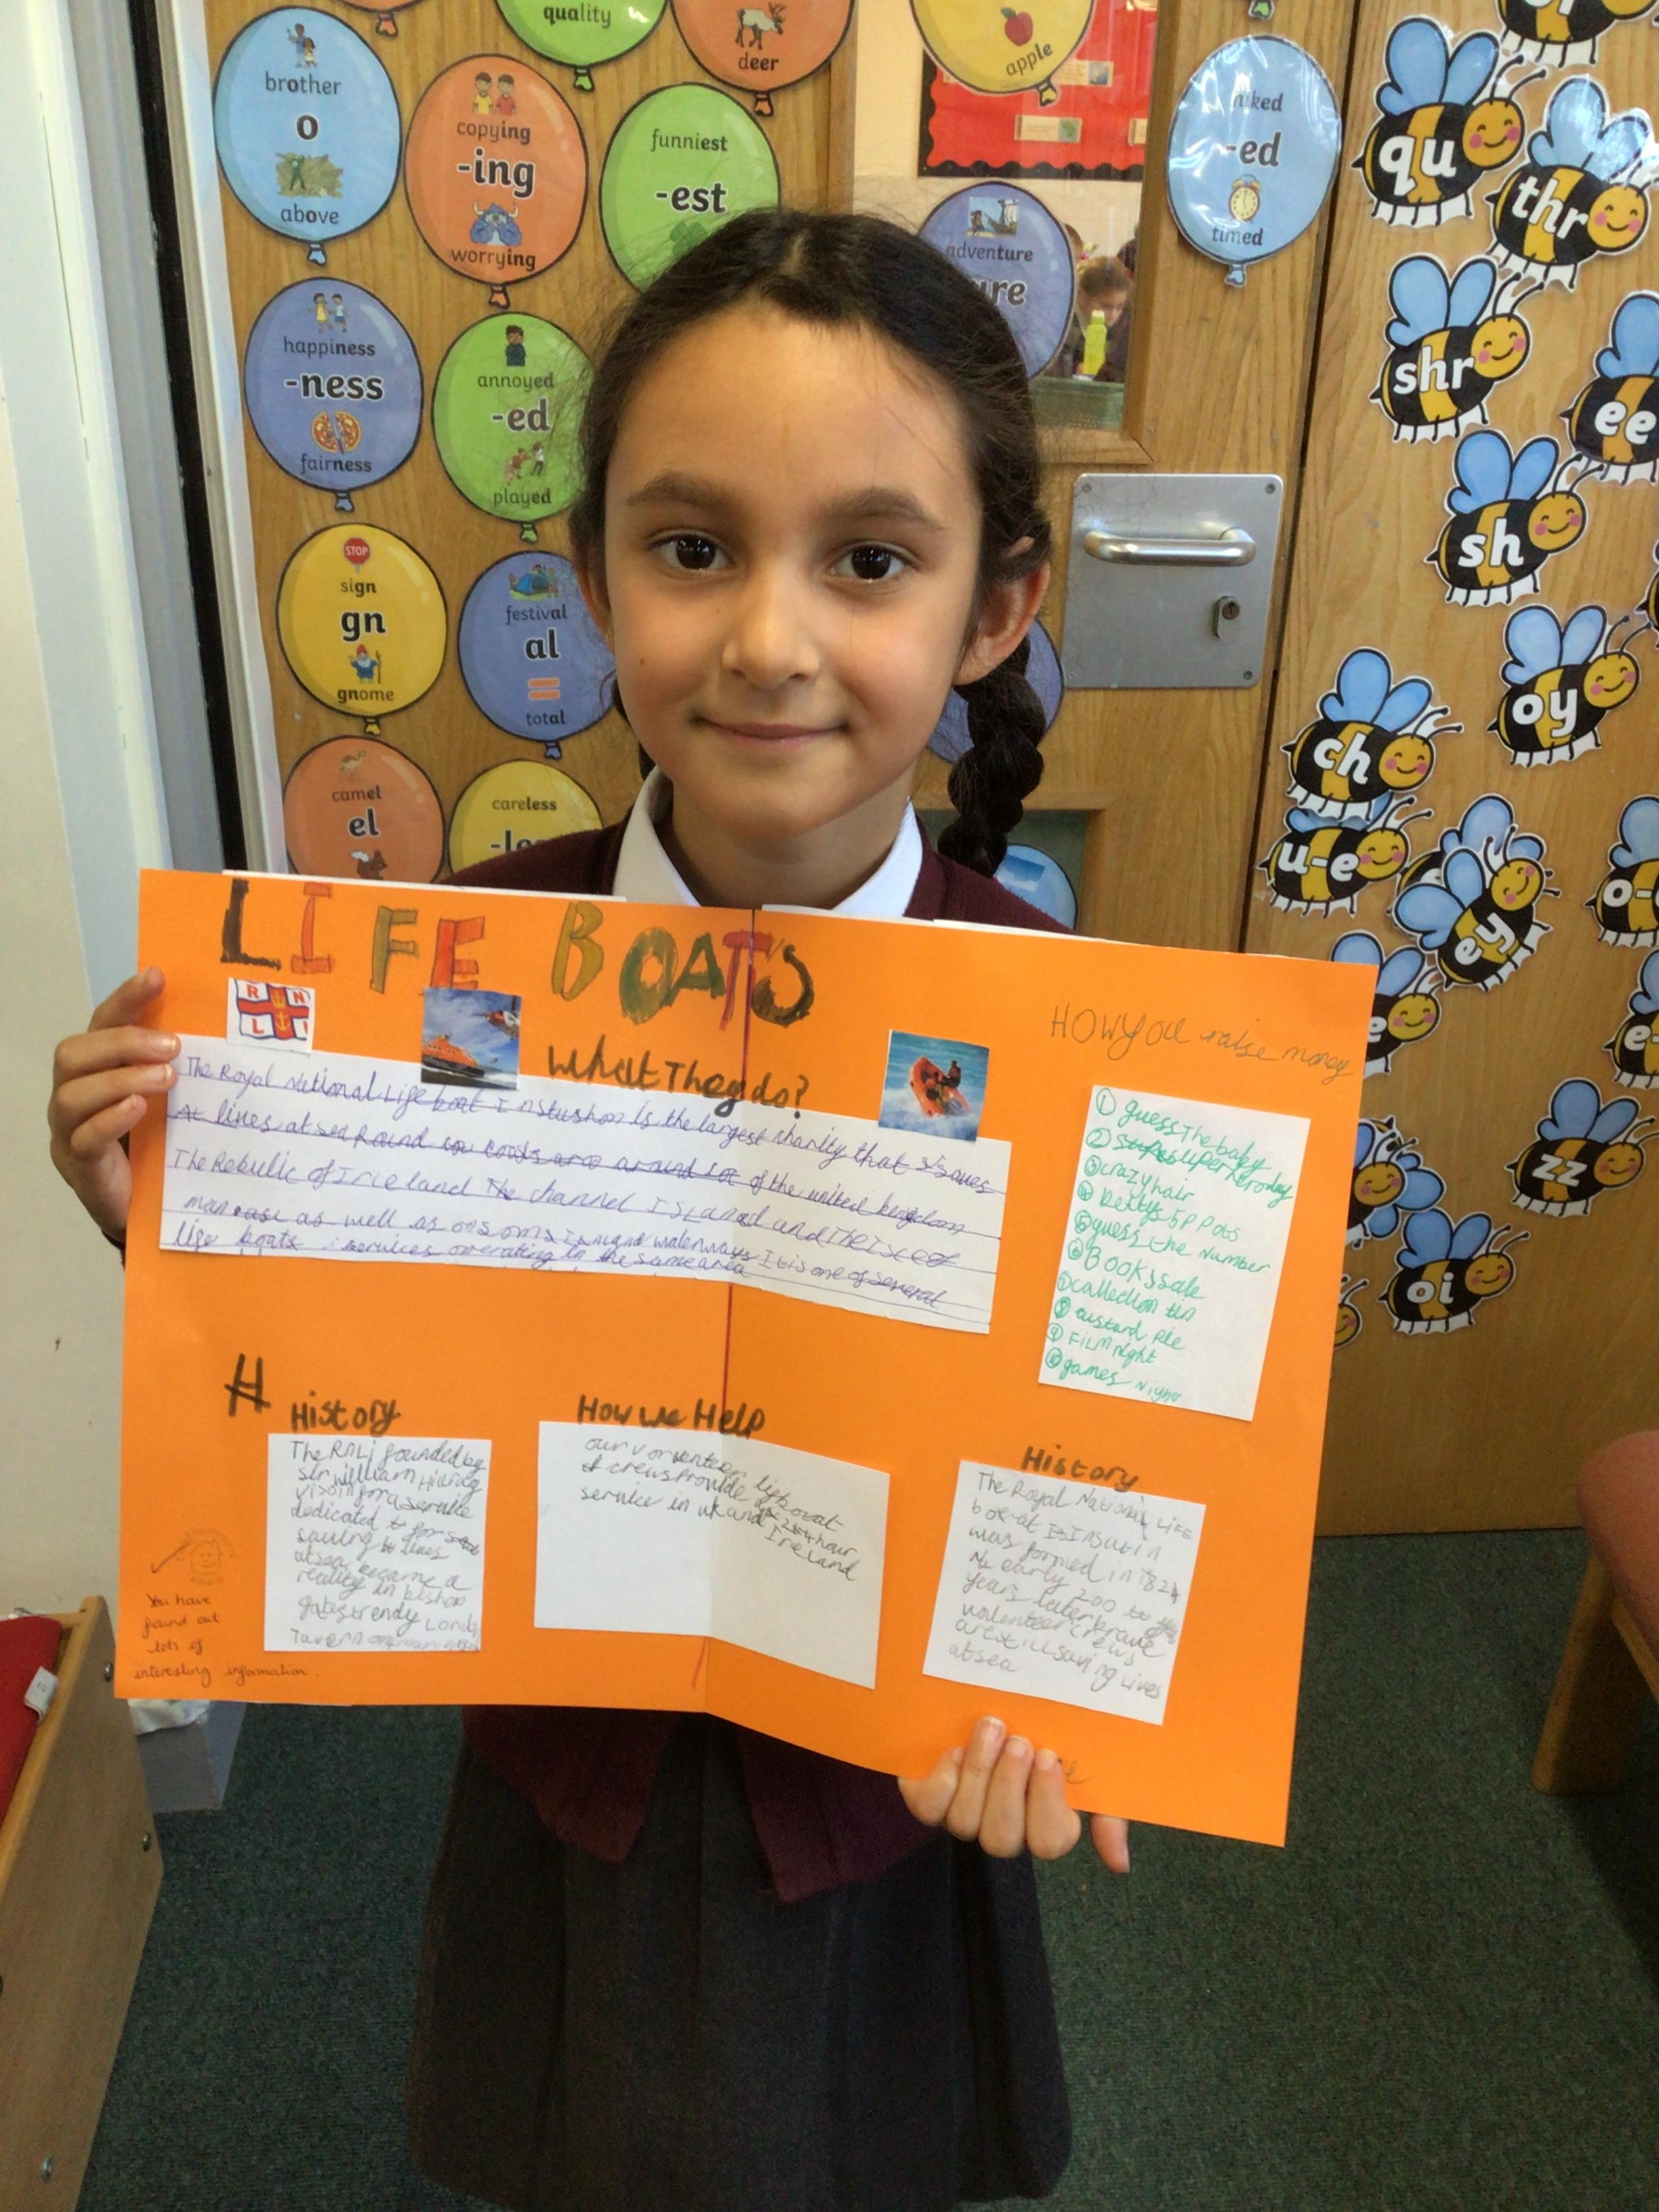 quality
deer
apple
brother
o
above
copying
-ing
worrying
funniest
-est
adventure
ure
-ed
timed
happiness
-ness
fairness
annoyed
-ed
played
STOP
sign
gn
gnome
festival
al
=
total
camel
el
careless
qu
thr
shr
ee
sh
oy
ch
u-e
ey
o-
e-
zz
oi
LIFE BOATS
R N
L I
What They do?
The Royal National Life boat Instushon is the largest charity that saves
lives at sea
of the united kingdom
The Rebulic of Ireland The channel Island and The Isle of
man as well as on som inland waterways It is one of several
life boats services operating in the same area
HOW you raise money
① guess The baby
② super superheroday
③ crazy hair
④ 5p Pots
⑤ guess the Number
⑥ Book sale
⑦ collection tin
⑧ custard pie
⑨ FILM night
⑩ games
H
History
The RNLi founded by
sir william
for a service
dedicated to for
saving lives
at sea became a
reality in bishop
gates London
Tavern
How we Help
our vorventeer lifeboat
crews provide 24 hour
service in uk and Ireland
History
The Royal National LIFE
was formed in 1824
early 200
years later brave
valenteer crews
are still saving Lives
at sea
You have
found out
lots of
interesting information.